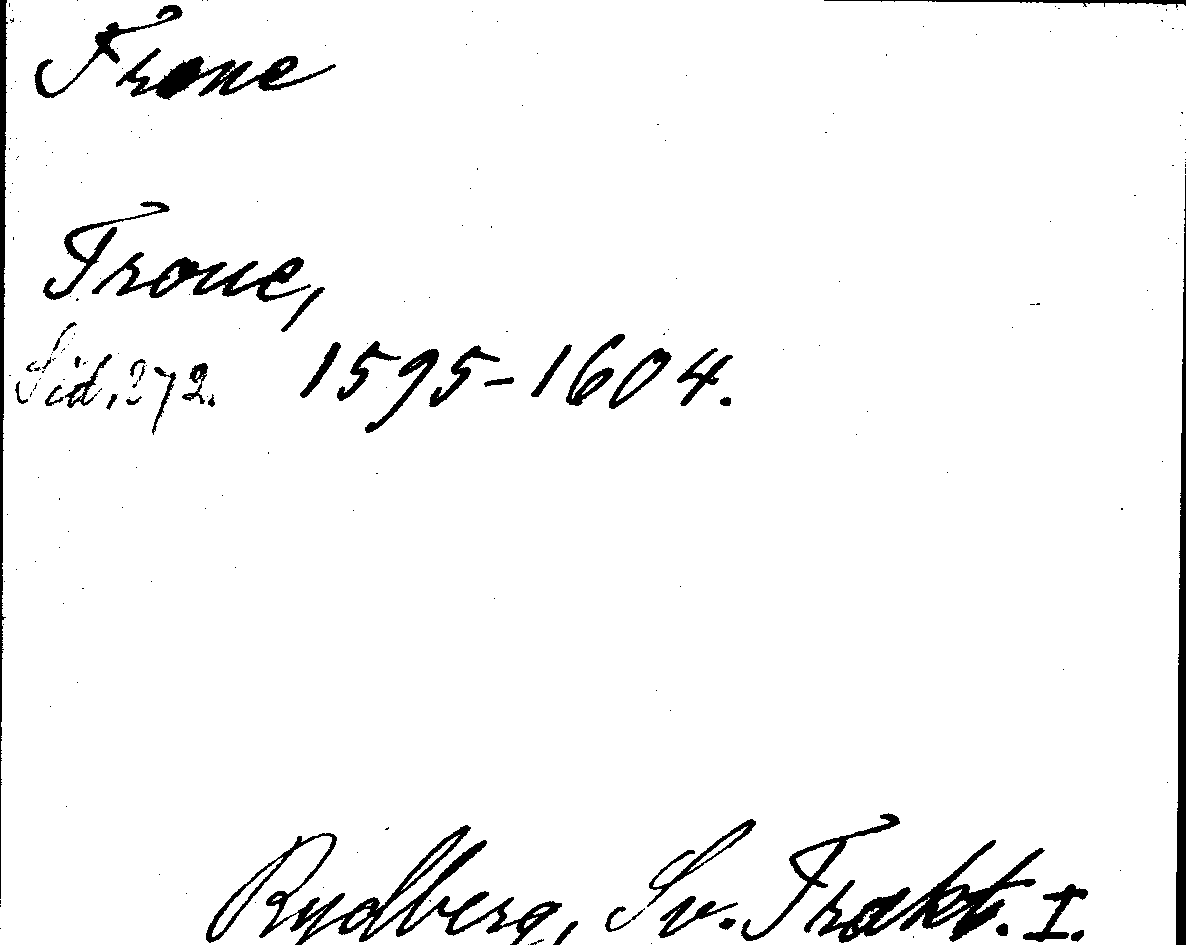 Trone
Trone,
Sid. 272. 1595-1604.
Rydberg, Sv. Trakt. I.